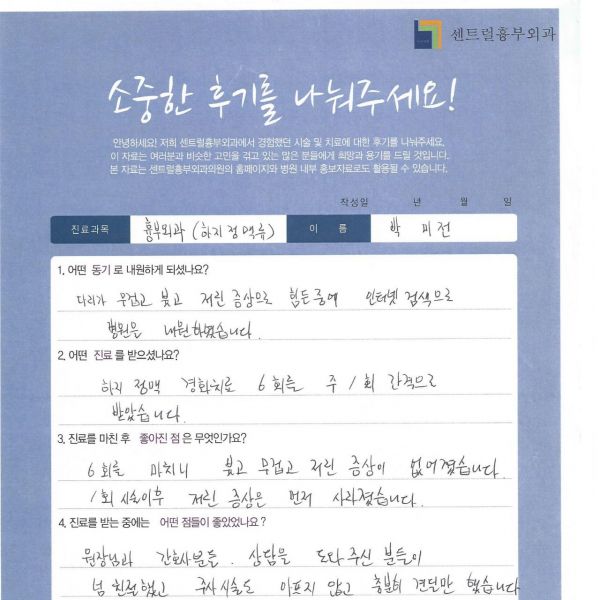 센트럴흉부외과
소중한 후기를 나눠주세요!
안녕하세요! 저희 센트럴흉부외과에서 경험했던 시술 및 치료에 대한 후기를 나눠주세요.
이 자료는 여러분과 비슷한 고민을 겪고 있는 많은 분들에게 희망과 용기를 드릴 것입니다.
본 자료는 센트럴흉부외과의원의 홈페이지와 병원 내부 홍보자료로도 활용될 수 있습니다.
작성일 년 월 일
진료과목 흉부외과 (하지정맥류) 이 름 박 미전
1. 어떤 동기 로 내원하게 되셨나요?
다리가 무겁고 붓고 저린 증상으로 힘든중에 인터넷 검색으로
병원을 내원하였습니다.
2. 어떤 진료 를 받으셨나요?
하지 정맥 경화치료 6회를 주 1회 간격으로
받았습니다.
3. 진료를 마친 후 좋아진 점 은 무엇인가요?
6회를 마치니 붓고 무겁고 저린 증상이 없어졌습니다.
1회 시술이후 저린 증상은 먼저 사라졌습니다.
4. 진료를 받는 중에는 어떤 점들이 좋았었나요?
원장님과 간호사분들. 상담을 도와주신 분들이
넘 친절했고 주사시술도 아프지 않고 충분히 견딜만 했습니다